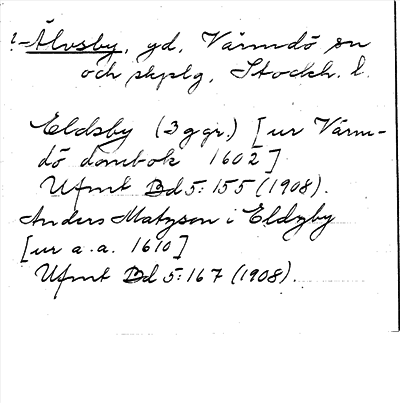 !-Älvsby, gd, Värmdö sn
och skplg, Stockh. l.
Eldsby (3 ggr.) [ur Värm-
dö dombok 1602]
Ufmt Bd 5:155 (1908).
Anders Matzson i Eldzby
[ur a.a. 1610]
Ufmt Bd 5:167 (1908).